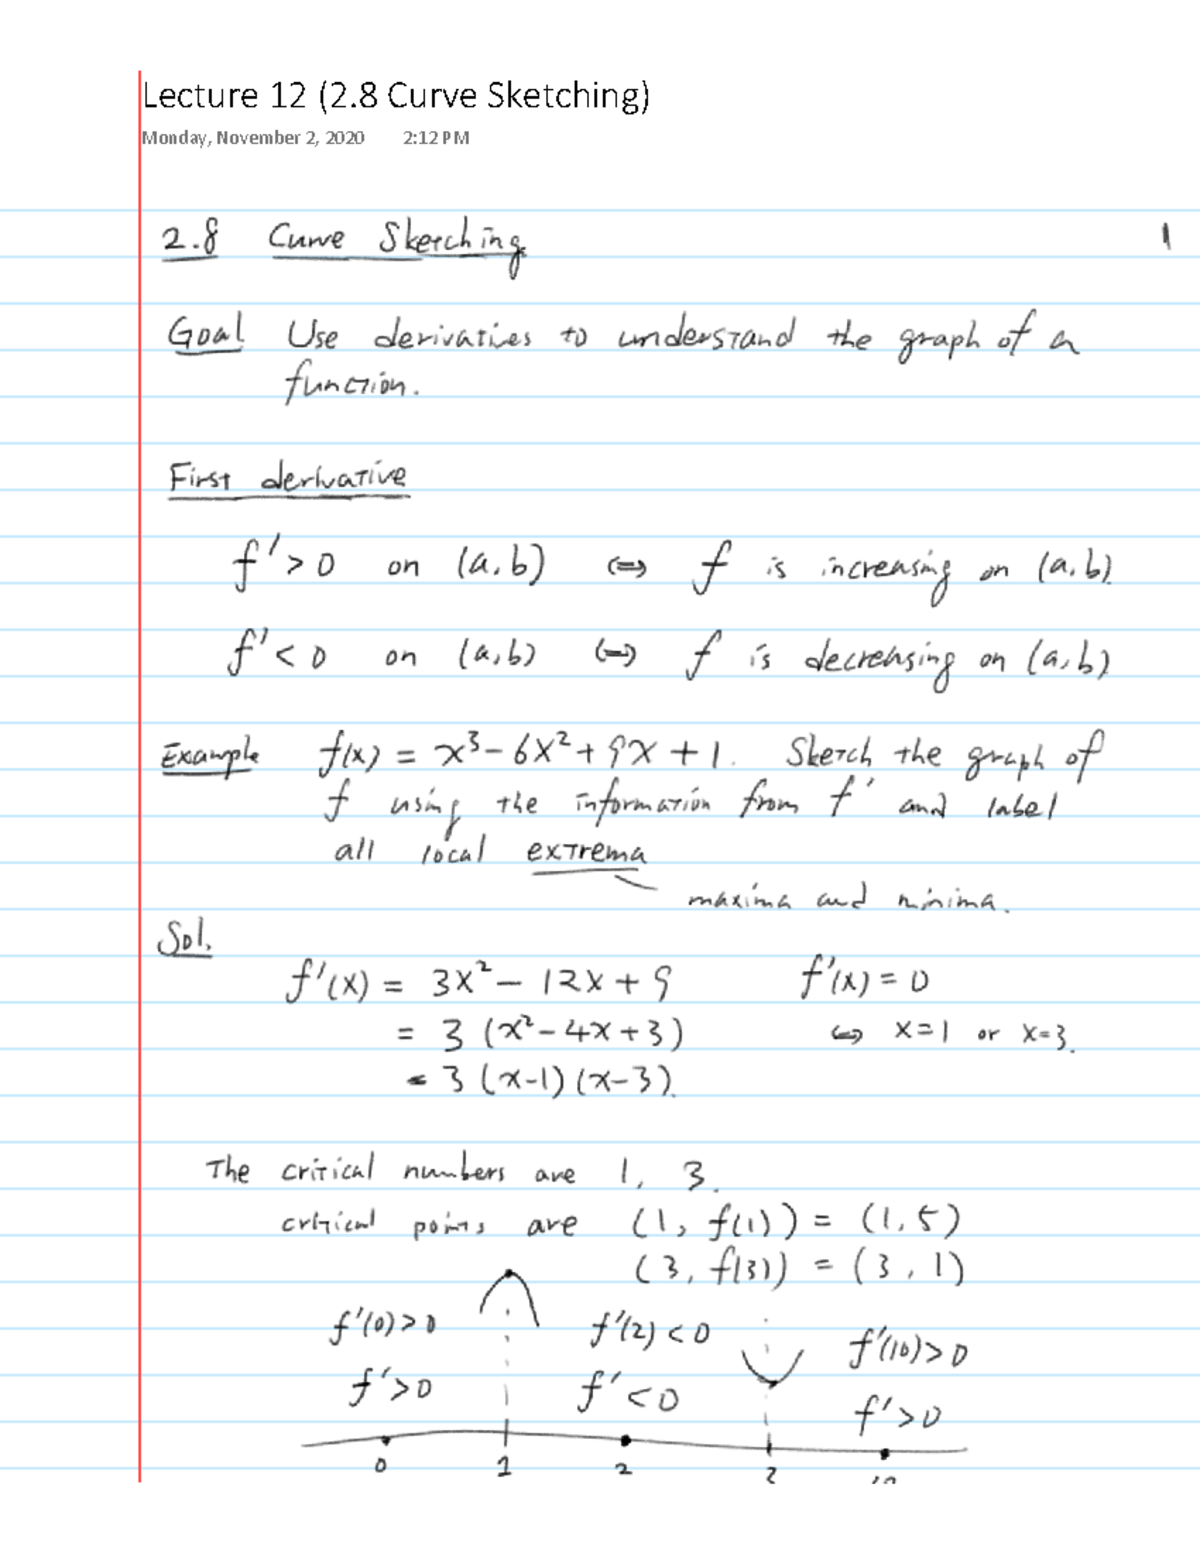 Lecture 12 (2.8 Curve Sketching)
Monday, November 2, 2020 2:12 PM
2.8 Curve Sketching 1
Goal Use derivatives to understand the graph of a
function.
First derivative
f'>0 on (a,b) ⇔ f is increasing on (a,b).
f'<0 on (a,b) ⇔ f is decreasing on (a,b).
Example f(x) = x³ - 6x² + 9x + 1. Sketch the graph of
f using the information from f' and label
all local extrema
maxima and minima.
Sol.
f'(x) = 3x² - 12x + 9 f'(x) = 0
= 3 (x² - 4x + 3) ⇔ x=1 or x=3.
= 3 (x-1)(x-3).
The critical numbers are 1, 3.
critical points are (1, f(1)) = (1, 5)
(3, f(3)) = (3, 1)
f'(0)>0 f'(2)<0 f'(10)>0
f'>0 f'<0 f'>0
0 1 2